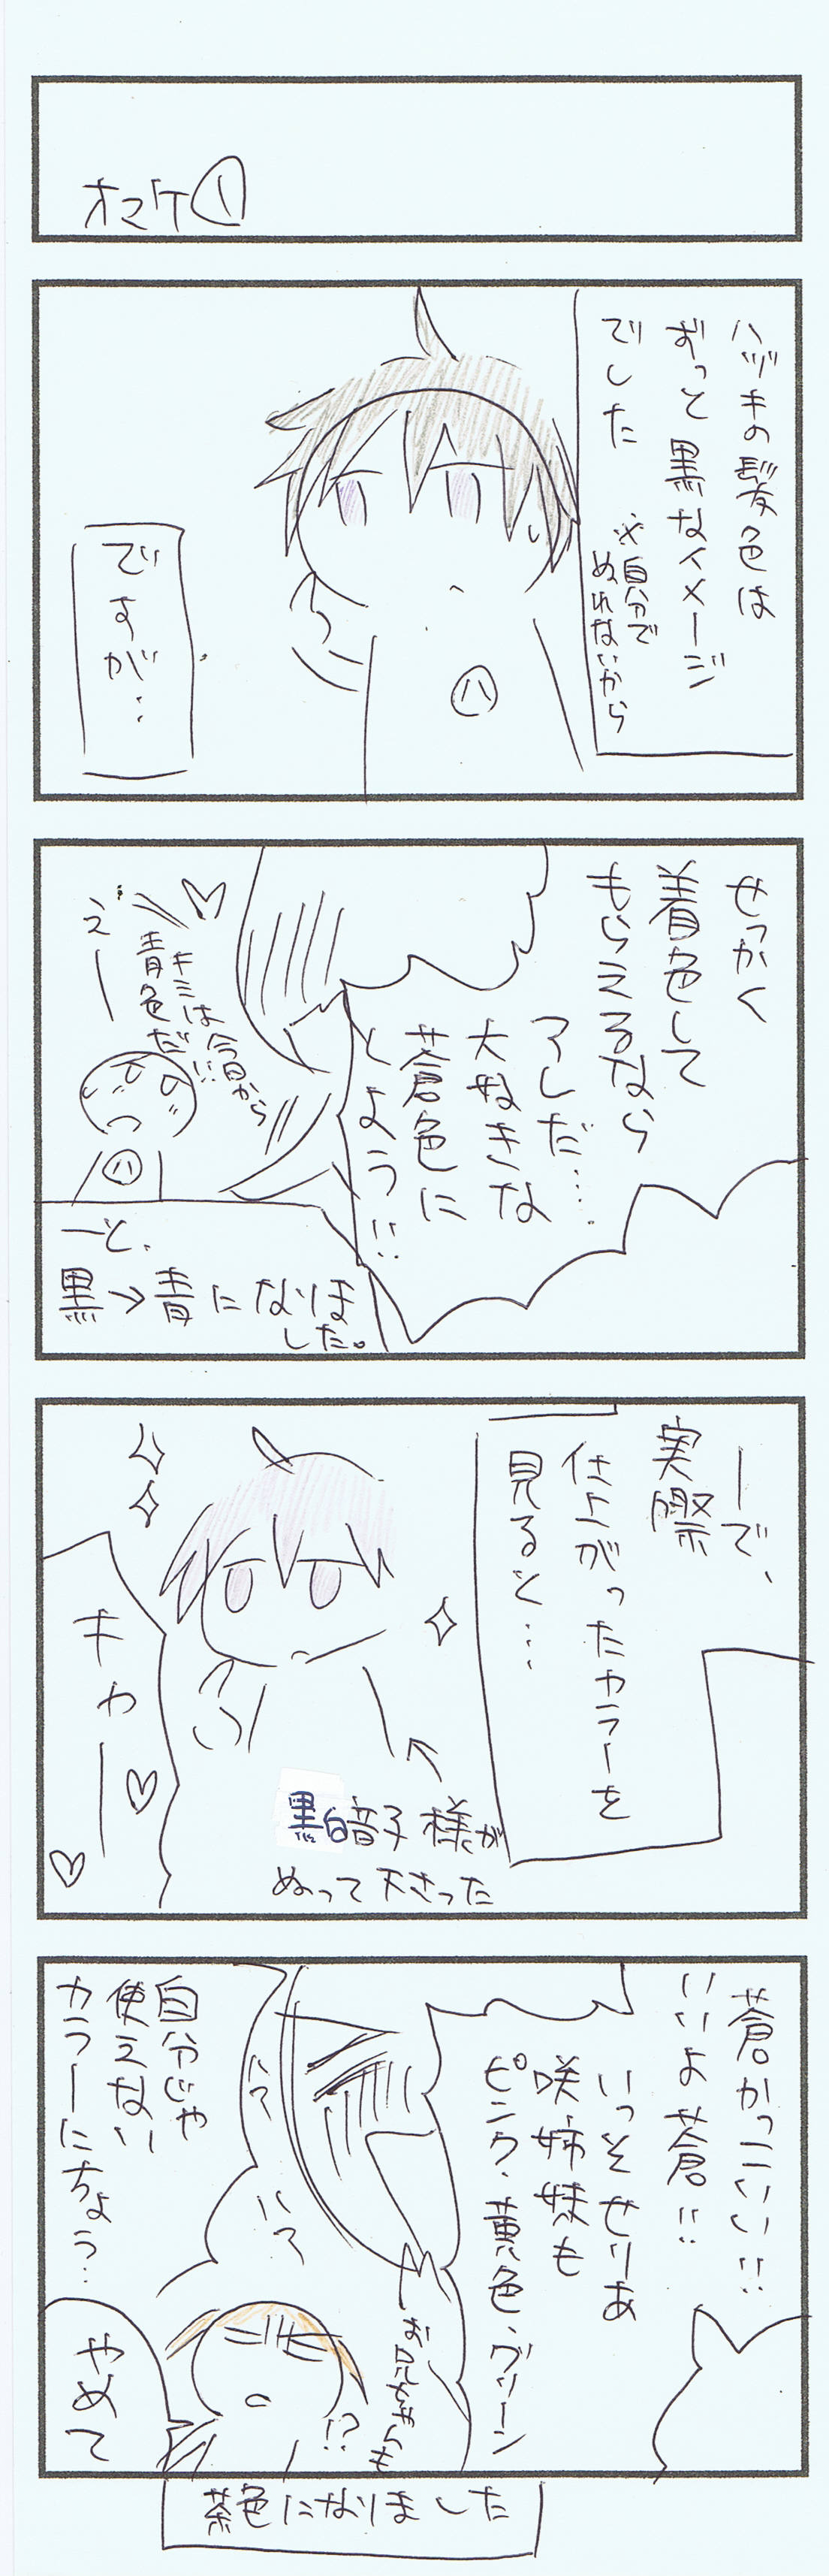 オマケ①
ハヅキの髪色は
ずっと黒なイメージ
でした
※自分で
ぬれないから
ハ
ですが…
せっかく
着色して
もらえるなら
アレだ…
大好きな
蒼色に
しよう!!
キミは今日から
青色だ!!
えー
ハ
ーと、
黒→青になりま
した。
ーで、
実際
仕上がったカラーを
見ると…
キャー
黒白音子様が
ぬって下さった
蒼かっこいい!!
いいよ蒼!!
いっそせりあ
咲姉妹も
ピンク、黄色、グリーン
お兄ちゃんも
ハァ
ハァ
自分じゃ
使えない
カラーにちょう…
!?
やめて
茶色になりました